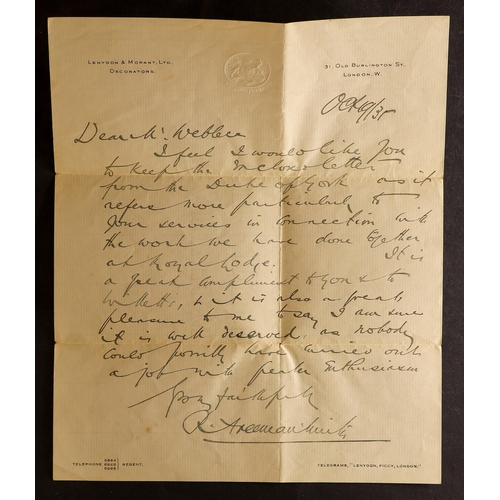 Lenygon & Morant, Ltd.
Decorators.
31, Old Burlington St.
London, W.
Oct 9/31
Dear Mr. Webber
I feel I would like you
to keep the enclosed letter
from the Duke of York as it
refers more particularly to
your services in connection with
the work we have done together
at Royal Lodge. It is
a great compliment to you & to
Willetts, & it is also a great
pleasure to me to say I am sure
it is well deserved, as nobody
could possibly have carried out
a job with greater enthusiasm
Yours faithfully
Telephone 6864 Regent.
Telegrams, "Lenygon, Piccy, London."